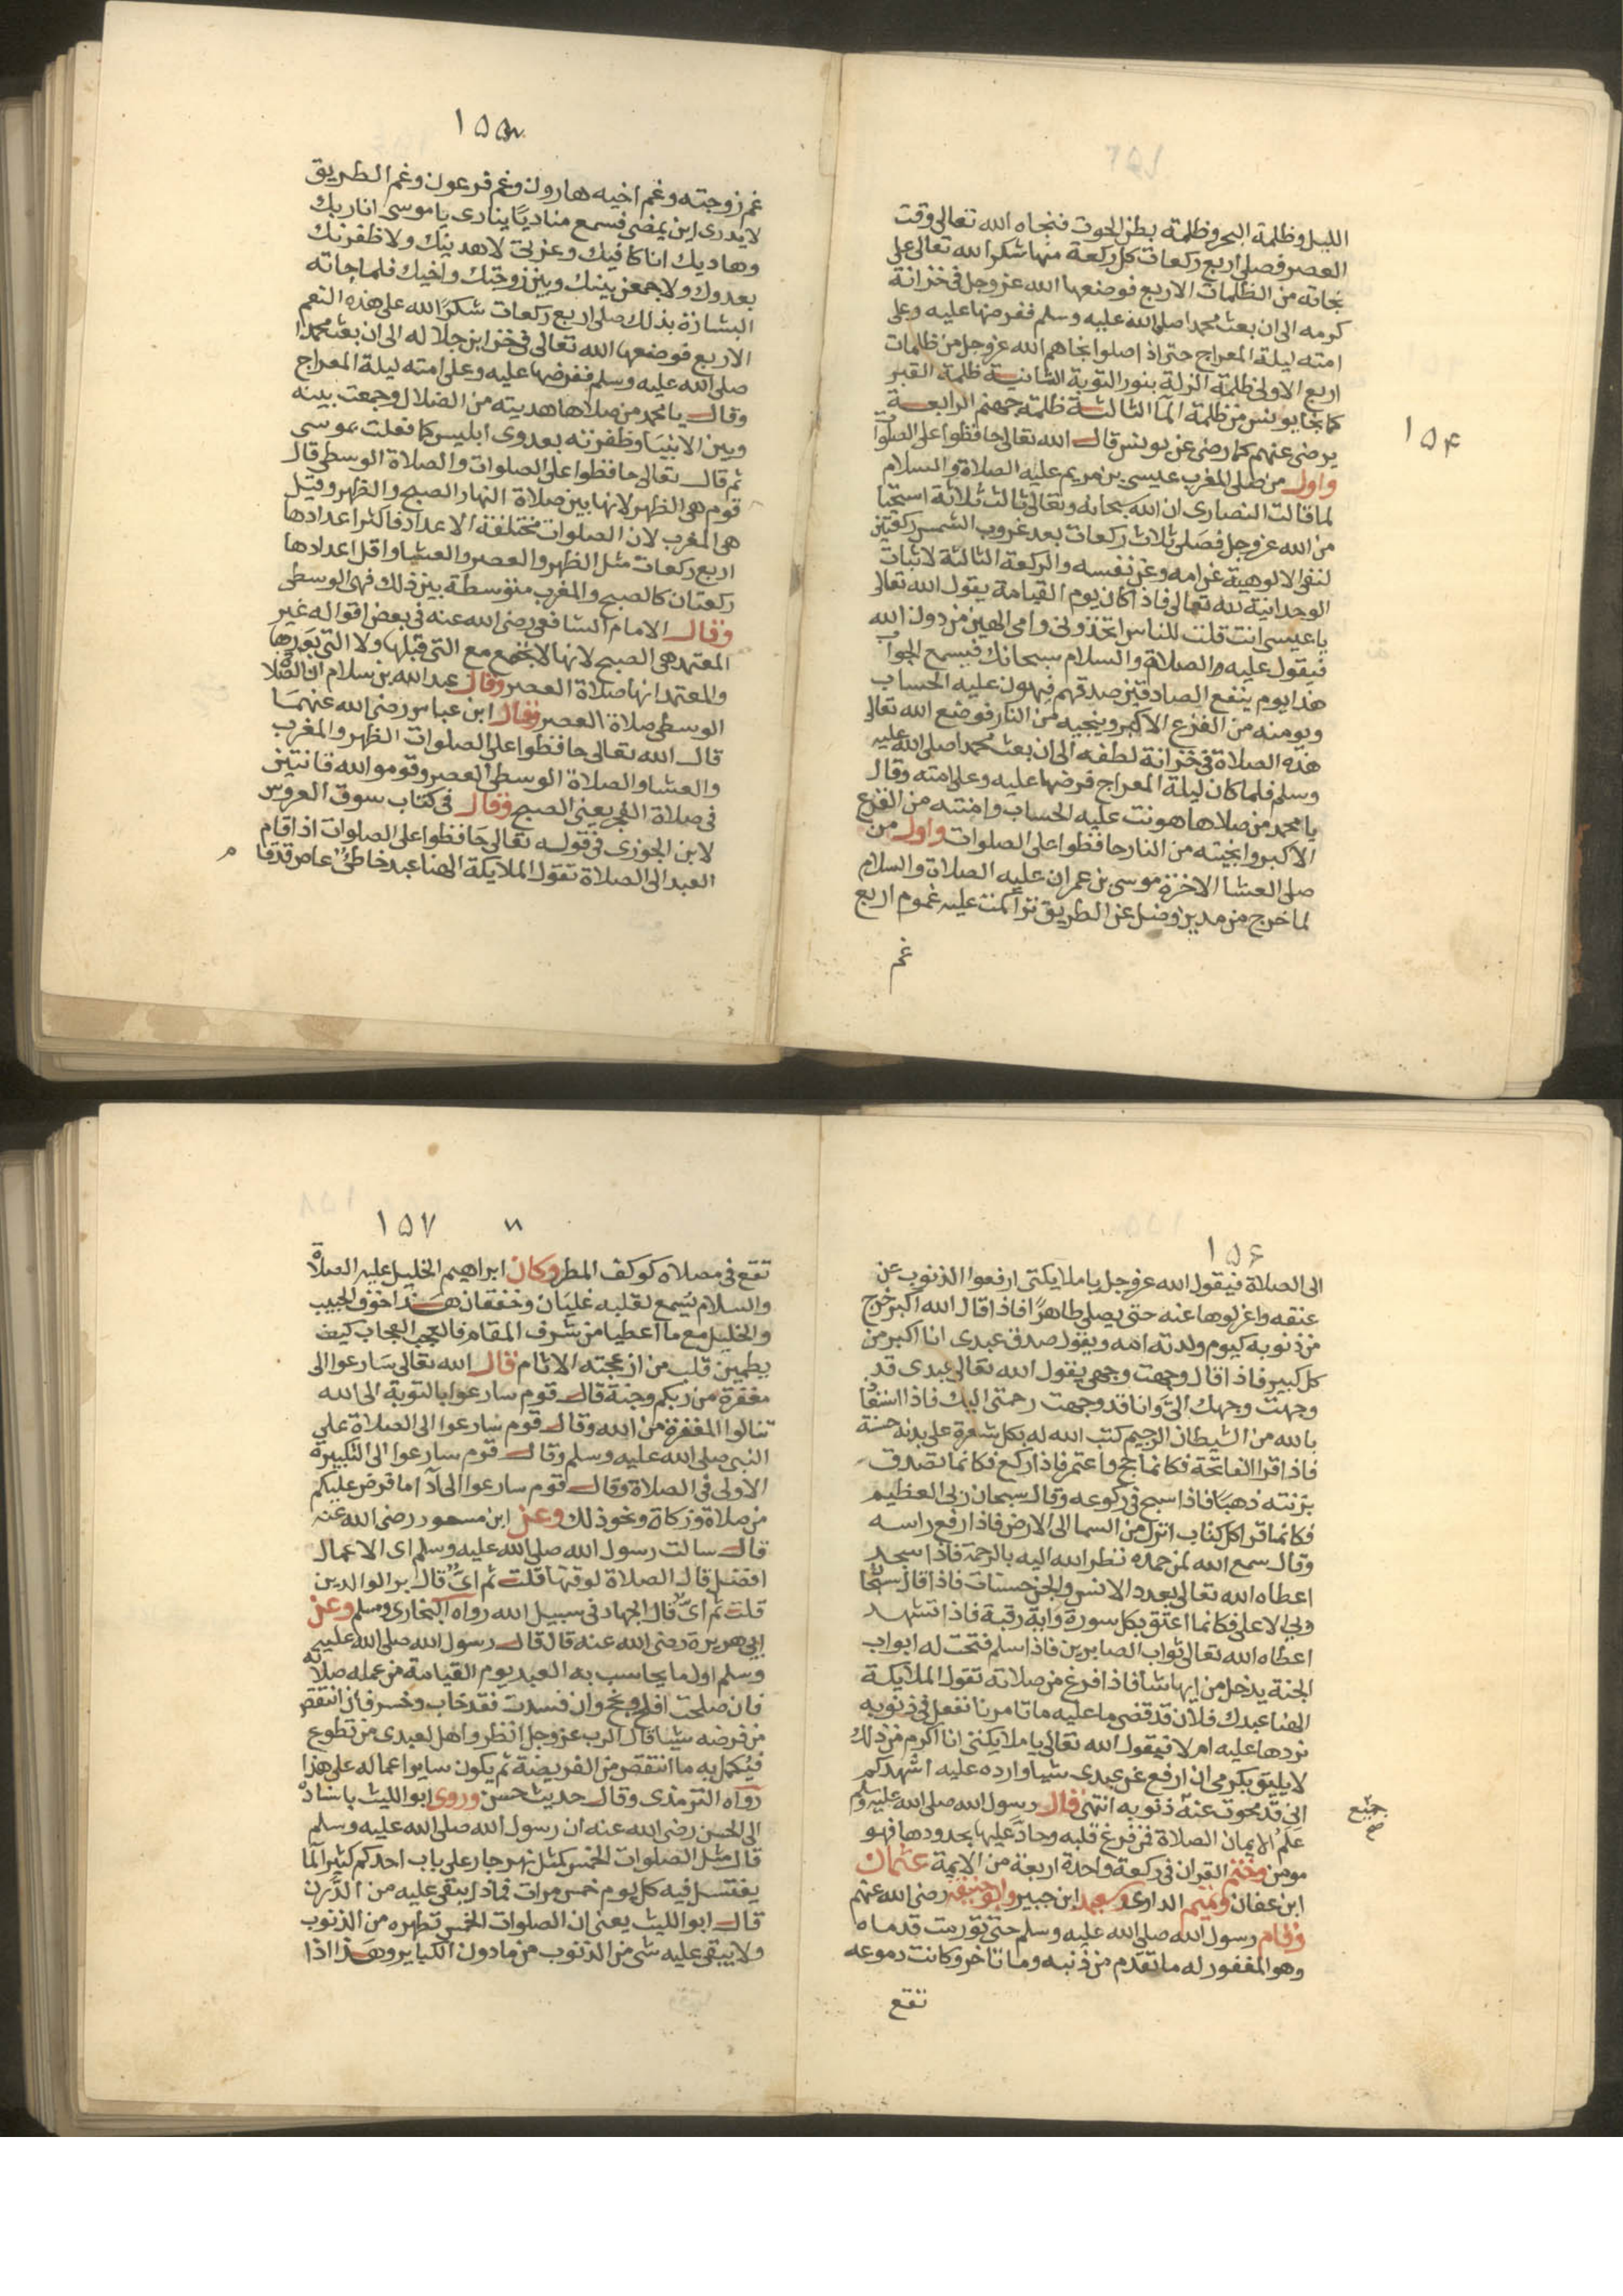 ١٥٤
الليل وظلمة البحر وظلمة بطن الحوت فنجاه الله تعالى وقت
العصر فصلى اربع ركعات كل ركعة منها شكرا لله تعالى على
نجاته من الظلمات الاربع فوضعها الله عز وجل فى خزانة
كرمه الى ان بعث محمدا صلى الله عليه وسلم ففرضها عليه وعلى
امته ليلة المعراج حتى اذا صلوا نجاهم الله عز وجل من ظلمات
اربع الاولى ظلمة الزلة بنور التوبة الثانية ظلمة القبر
كما نجا يونس من ظلمة المآ الثالثة ظلمة جهنم الرابعة
يرضى عنهم كما رضى عن يونس قال الله تعالى حافظوا على الصلوات
واول من صلى المغرب عيسى بن مريم عليه الصلاة والسلام
لما قالت النصارى ان الله سبحانه وتعالى ثالث ثلاثة استحيا
من الله عز وجل فصلى ثلاث ركعات بعد غروب الشمس ركعتين
لنفى الالوهية عن امه وعن نفسه والركعة الثالثة لاثبات
الوحدانية لله تعالى فاذا كان يوم القيامة يقول الله تعالى
يا عيسى انت قلت للناس اتخذونى وامى الهين من دون الله
فيقول عليه الصلاة والسلام سبحانك فيسمع الجواب
هذا يوم ينفع الصادقين صدقهم فيهون عليه الحساب
ويومنه من الفزع الاكبر وينجيه من النار فوضع الله تعالى
هذه الصلاة فى خزانة لطفه الى ان بعث محمدا صلى الله عليه
وسلم فلما كان ليلة المعراج فرضها عليه وعلى امته وقال
يا محمد من صلاها هونت عليه الحساب وامنته من الفزع
الاكبر وانجيته من النار حافظوا على الصلوات واول من
صلى العشا الاخرة موسى بن عمران عليه الصلاة والسلام
لما خرج من مدين وضل عن الطريق تراكمت عليه غموم اربع
غم
١٥٥
غم زوجته وغم اخيه هارون وغم فرعون وغم الطريق
لا يدرى اين يمضى فسمع مناديًا ينادى يا موسى انا ربك
وهاديك انا كافيك وعزتى لاهدينك ولاظفرنك
بعدوك ولاجمعن بينك وبين زوجتك واخيك فلما جاته
البشارة بذلك صلى اربع ركعات شكرًا لله على هذه النعم
الاربع فوضعها الله تعالى فى خزاين جلاله الى ان بعث محمدا
صلى الله عليه وسلم ففرضها عليه وعلى امته ليلة المعراج
وقال يا محمد من صلاها هديته من الضلال وجمعت بينه
وبين الانبيا وظفرته بعدوى ابليس كما فعلت بموسى
ثم قال تعالى حافظوا على الصلوات والصلاة الوسطى قال
قوم هى الظهر لانها بين صلاة النهار الصبح والظهر وقيل
هى المغرب لان الصلوات مختلفة الاعداد فاكثر اعدادها
اربع ركعات مثل الظهر والعصر والعشا واقل اعدادها
ركعتان كالصبح والمغرب متوسطة بين ذلك فهى الوسطى
وقال الامام الشافعى رضى الله عنه فى بعض اقواله غير
المعتمد هى الصبح لانها لا تجمع مع التى قبلها ولا التى بعدها
والمعتمد انها صلاة العصر وقال عبد الله بن سلام ان الصلاة
الوسطى صلاة العصر وقال ابن عباس رضى الله عنهما
قال الله تعالى حافظوا على الصلوات الظهر والمغرب
والعشا والصلاة الوسطى العصر وقوموا لله قانتين
فى صلاة الفجر يعنى الصبح وقال فى كتاب سوق العروس
لابن الجوزى فى قوله تعالى حافظوا على الصلوات اذا قام
العبد الى الصلاة تقول الملايكة الهنا عبد خاطئ عاص قد قام
١٥٦
الى الصلاة فيقول الله عز وجل يا ملايكتى ارفعوا الذنوب عن
عنقه واعزلوها عنه حتى يصلى طاهرًا فاذا قال الله اكبر خرج
من ذنوبه كيوم ولدته امه ويقول صدق عبدى انا اكبر من
كل كبير فاذا قال وجهت وجهى يقول الله تعالى عبدى قد
وجهت وجهك الىّ وانا قد وجهت رحمتى اليك فاذا استعاذ
بالله من الشيطان الرجيم كتب الله له بكل شعرة على بدنه حسنة
فاذا قرا الفاتحة فكانما حج واعتمر فاذا ركع فكانما تصدق
بزنته ذهبًا فاذا سبح فى ركوعه وقال سبحان ربى العظيم
فكانما قرا كل كتاب انزل من السما الى الارض فاذا رفع راسه
وقال سمع الله لمن حمده نظر الله اليه بالرحمة فاذا سجد
اعطاه الله تعالى بعدد الانس والجن حسنات فاذا قال سبحان
ربى الاعلى فكانما اعتق بكل سورة واية رقبة فاذا تشهد
اعطاه الله تعالى ثواب الصابرين فاذا سلم فتحت له ابواب
الجنة يدخل من ايها شا فاذا فرغ من صلاته تقول الملايكة
الهنا عبدك فلان قد قضى ما عليه ما تامرنا نفعل فى ذنوبه
نردها عليه ام لا فيقول الله تعالى يا ملايكتى انا اكرم من ذلك
لا يليق بكرمى ان ارفع عن عبدى شيا وارده عليه اشهدكم
انى قد محوت عنه ذنوبه انتهى قال رسول الله صلى الله عليه وسلم
جميع
صح
علم الايمان الصلاة فمن فرغ قلبه وحاذ عليها بحدودها فهو
مومن وختم القران فى ركعة واحدة اربعة من الايمة عثمان
ابن عفان وتميم الدارى وسعيد ابن جبير وابو حنيفة رضى الله عنهم
وقام رسول الله صلى الله عليه وسلم حتى تورمت قدماه
وهو المغفور له ما تقدم من ذنبه وما تاخر وكانت دموعه
تقع
١٥٧
تقع فى مصلاه كوكف المطر وكان ابراهيم الخليل عليه الصلاة
والسلام يسمع لقلبه غليان وخفقان هذا خوف الحبيب
والخليل مع ما اعطيا من شرف المقام فالعجب العجاب كيف
يطمين قلب من ازعجته الاثام قال الله تعالى سارعوا الى
مغفرة من ربكم وجنة قال قوم سارعوا بالتوبة الى الله
تنالوا المغفرة من الله وقال قوم سارعوا الى الصلاة على
النبى صلى الله عليه وسلم وقال قوم سارعوا الى التكبيرة
الاولى فى الصلاة وقال قوم سارعوا الى آدا ما فرض عليكم
من صلاة وزكاة ونحو ذلك وعن ابن مسعود رضى الله عنه
قال سالت رسول الله صلى الله عليه وسلم اى الاعمال
افضل قال الصلاة لوقتها قلت ثم اىّ قال بر الوالدين
قلت ثم اىّ قال الجهاد فى سبيل الله رواه البخارى ومسلم وعن
ابى هريرة رضى الله عنه قال قال رسول الله صلى الله عليه
وسلم اول ما يحاسب به العبد يوم القيامة من عمله صلاته
فان صلحت افلح ونجح وان فسدت فقد خاب وخسر فان انتقص
من فرضه شيا قال الرب عز وجل انظروا هل لعبدى من تطوع
فيُكمل به ما انتقص من الفريضة ثم يكون ساير اعماله على هذا
رواه الترمذى وقال حديث حسن وروى ابو الليث باسناده
الى الحسن رضى الله عنه ان رسول الله صلى الله عليه وسلم
قال مثل الصلوات الخمس كمثل نهر جار على باب احدكم كثير المآ
يغتسل فيه كل يوم خمس مرات فماذا يبقى عليه من الدرن
قال ابو الليث يعنى ان الصلوات الخمس تطهره من الذنوب
ولا يبقى عليه شى من الذنوب من ما دون الكباير وهذا اذا